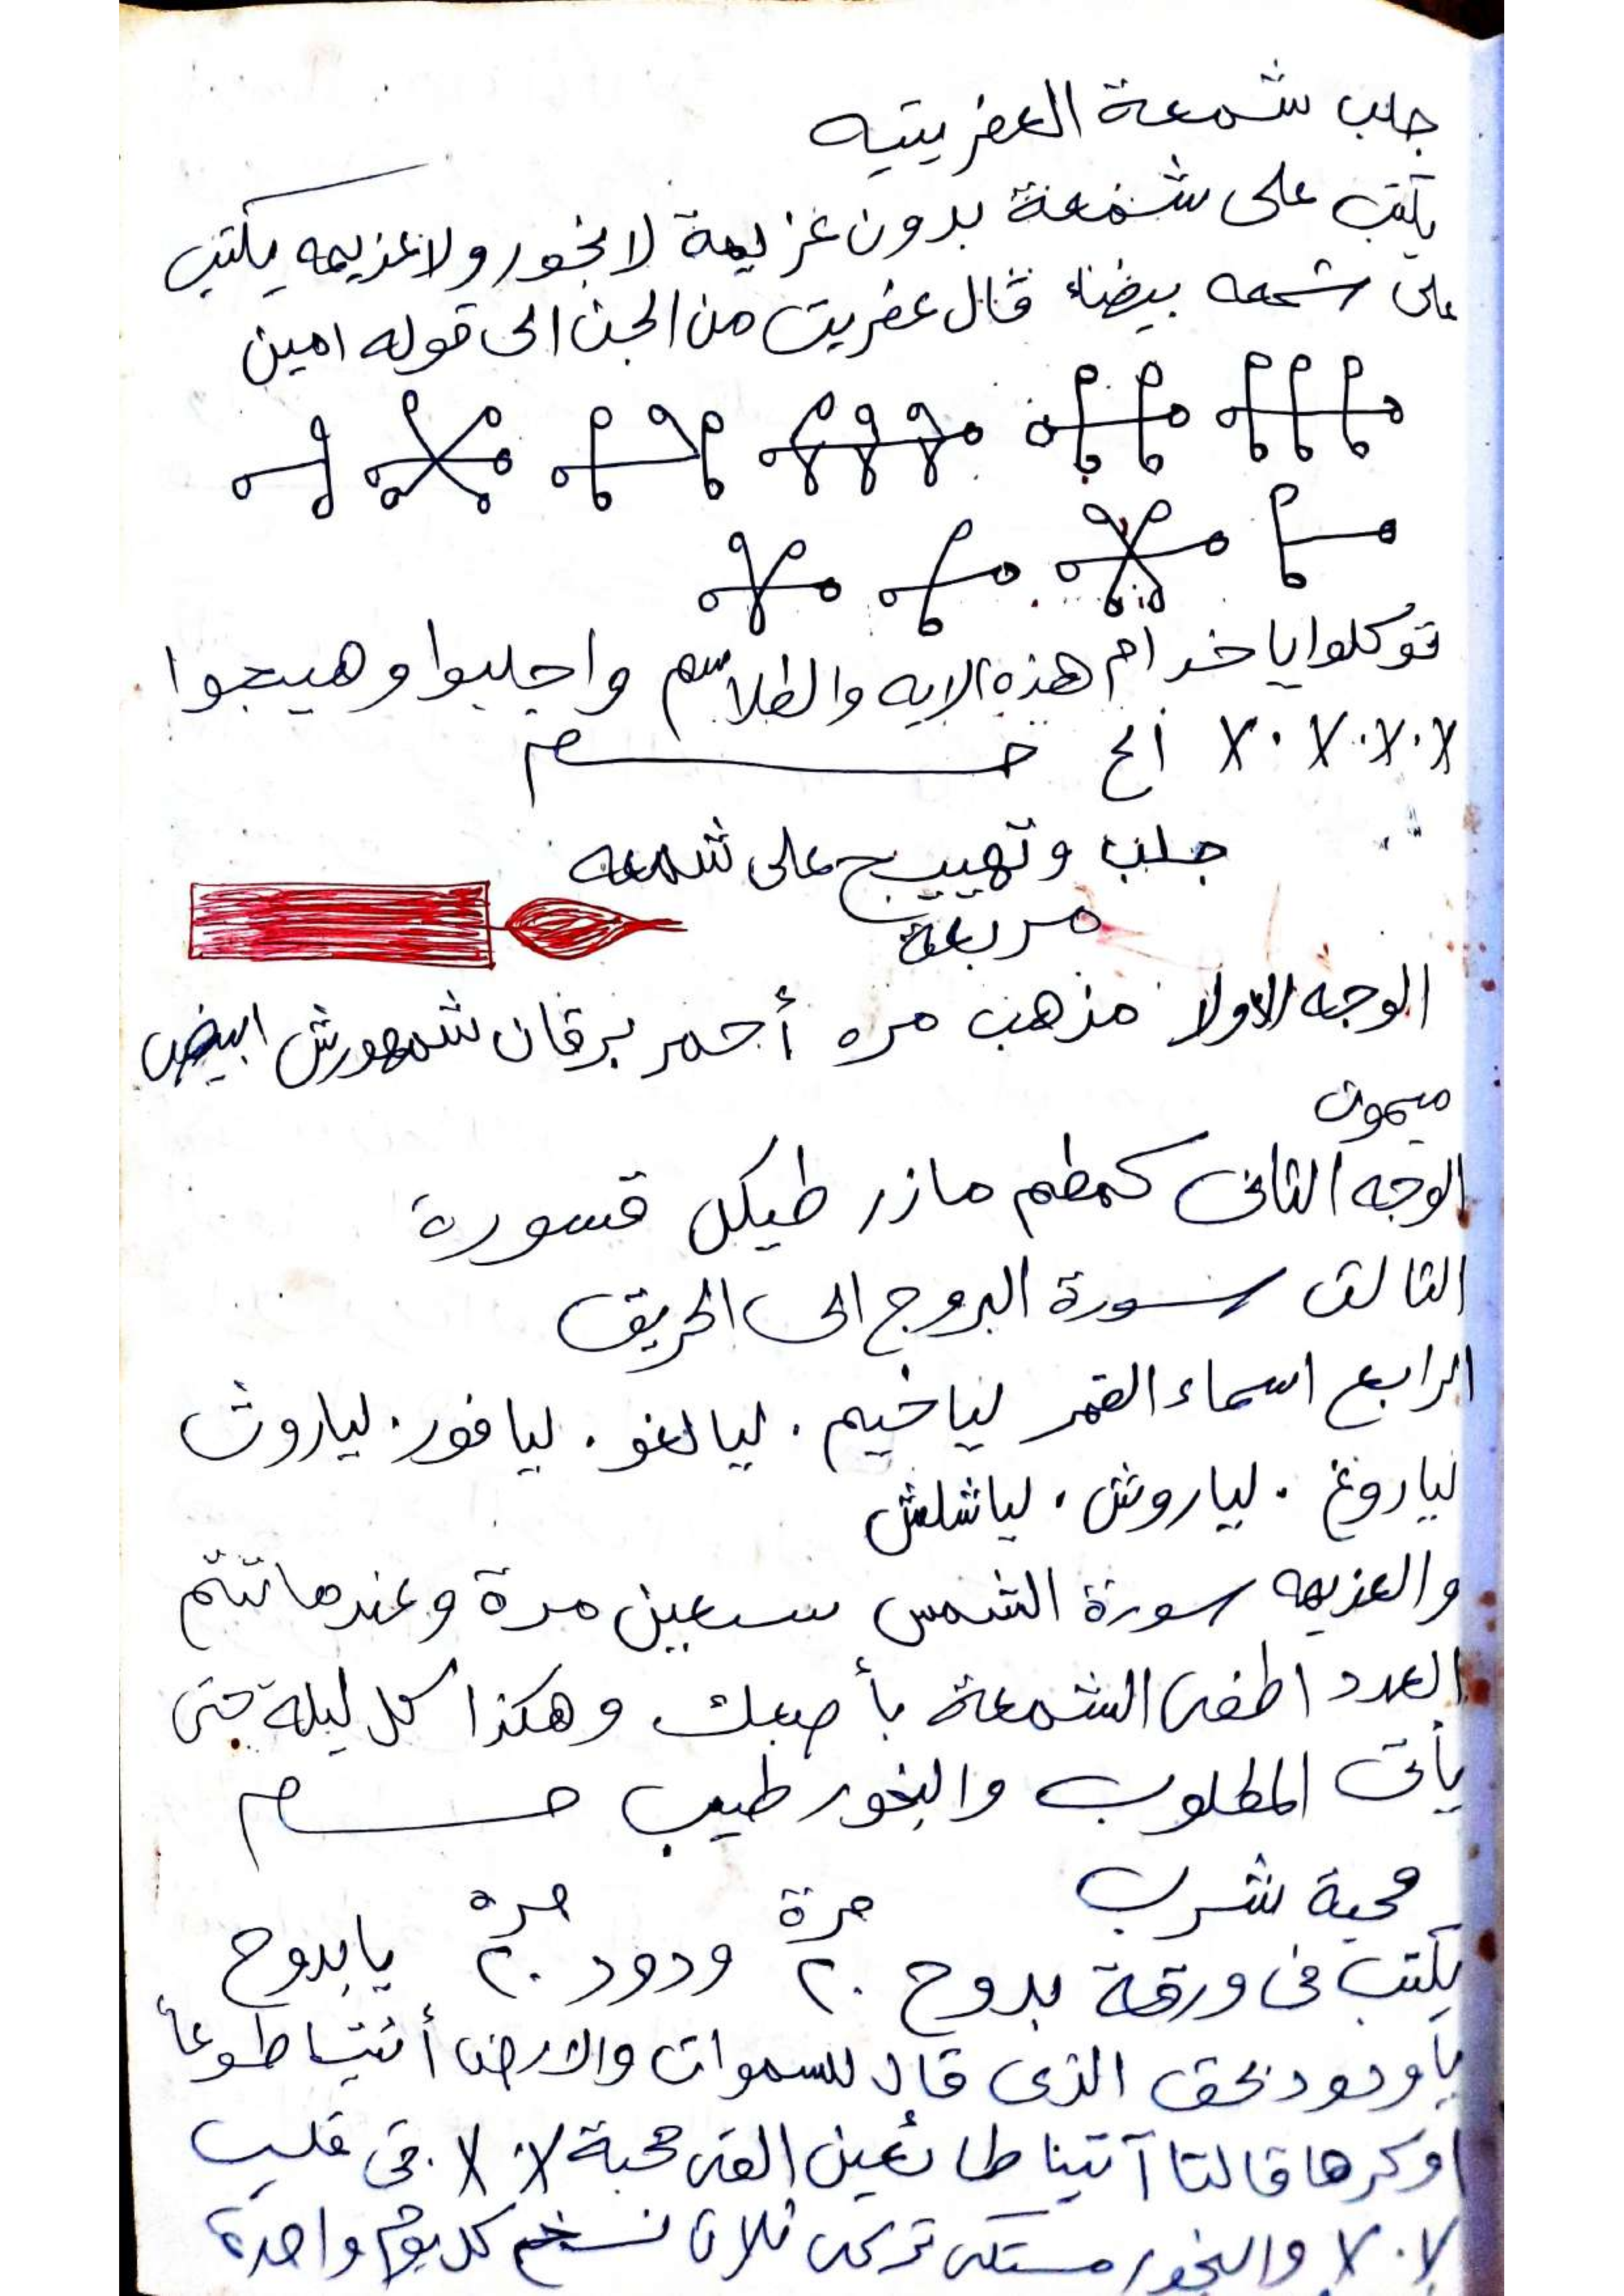 جلب شمعة العفريتيه
يكتب على شمعة بدون عزيمة لا بخور ولا عزيمه يكتب
على شمعه بيضاء قال عفريت من الجن الى قوله امين
توكلوا يا خدام هذه الايه والطلاسم واجلبوا وهيجوا
الخ
جلب وتهييج على شمعه
مربعة
الوجه الاولا مذهب مره أحمر برقان شمهورش ابيض
ميمون
الوجه الثانى كمطم مازر طيكل قسورة
الثالث سورة البروج الى الحريق
الرابع اسماء القمر لياخيم . ليالغو . ليافور . لياروث
لياروغ . لياروش . لياشلش
والعزيمه سورة الشمس سبعين مرة وعندما تتم
العدد اطفى الشمعة بأصبعك وهكذا كل ليلة حتى
يأتى المطلوب والبخور طيب
محبة شرب
يكتب فى ورقة بدوح ٢٠ مرة ودود ٢٠ مره يابدوح
ياودود بحق الذى قال للسموات والارض أئتيا طوعا
او كرها قالتا آتينا طائعين القى محبة فى قلب
والبخور مستكى تركى ثلاث نسخ كل يوم واحدة